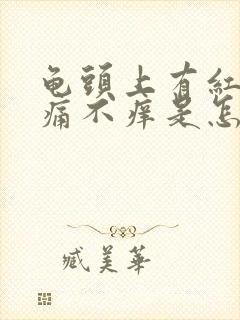 龟頭上有紅
痛不痒是怎
臧美華